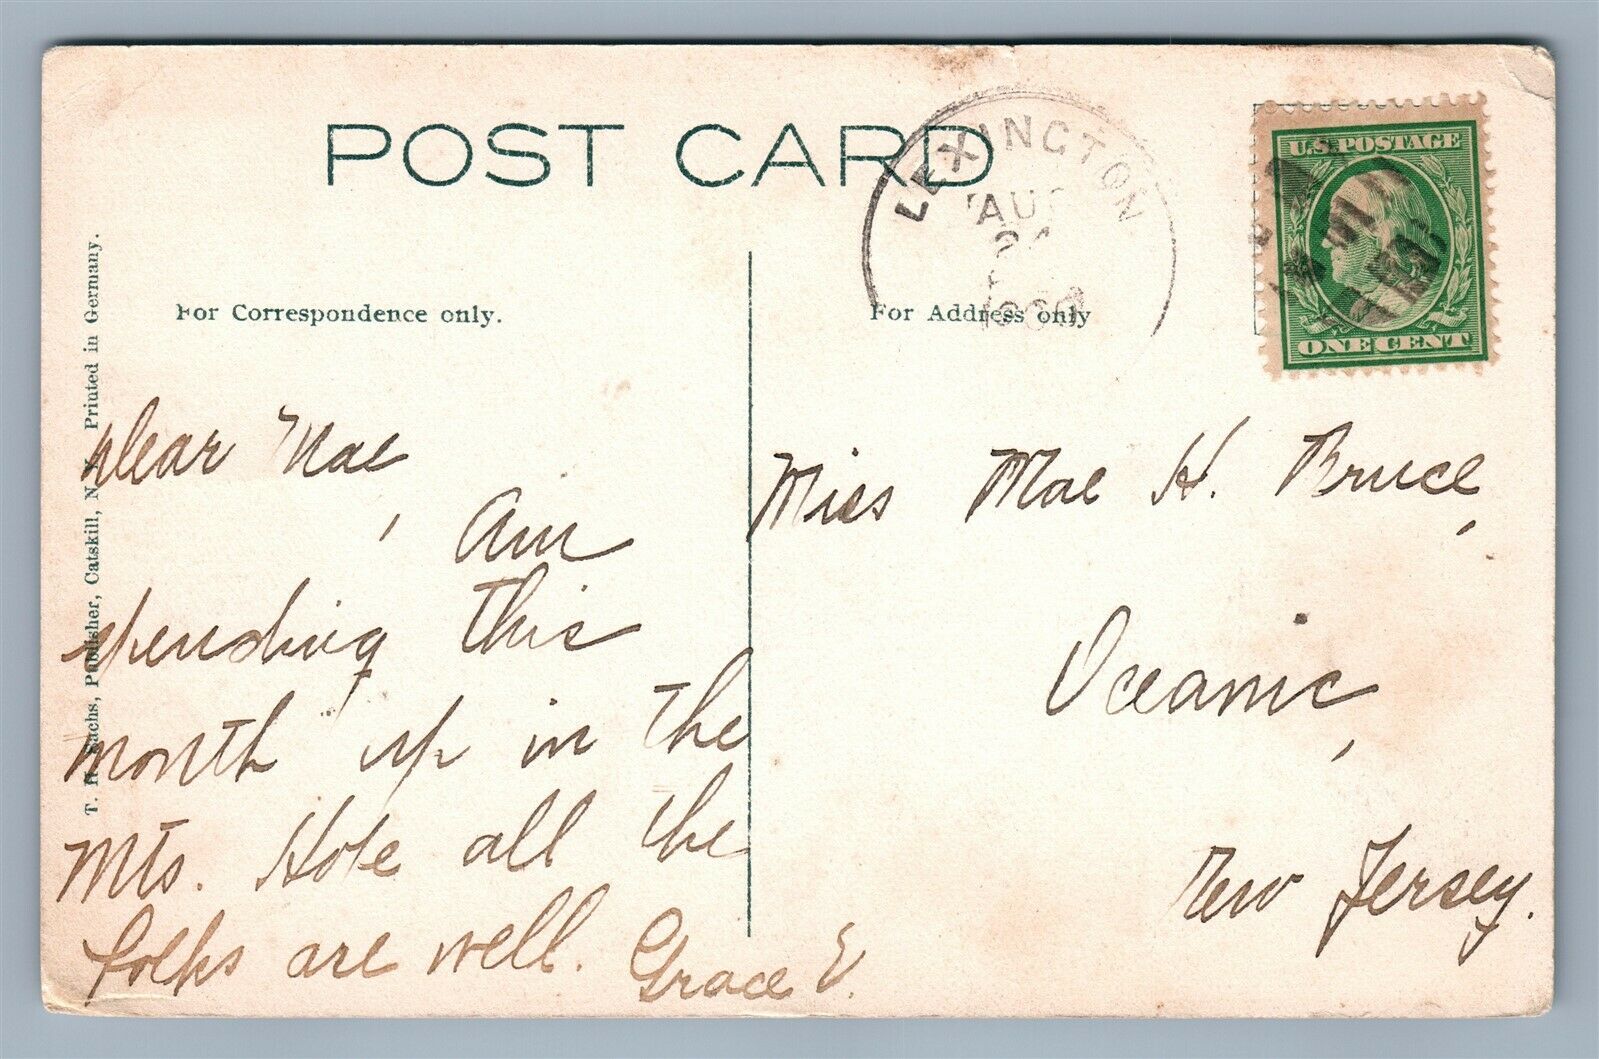 POST CARD
LEXINGTON
AUG
U.S. POSTAGE
ONE CENT
For Correspondence only.
For Address only
T. H. Sachs, Publisher, Catskill, N. Y. Printed in Germany.
Dear Mae,
Am
spending this
month up in the
Mts. Hope all the
folks are well. Grace E.
Miss Mae H. Bruce,
Oceanic,
New Jersey.